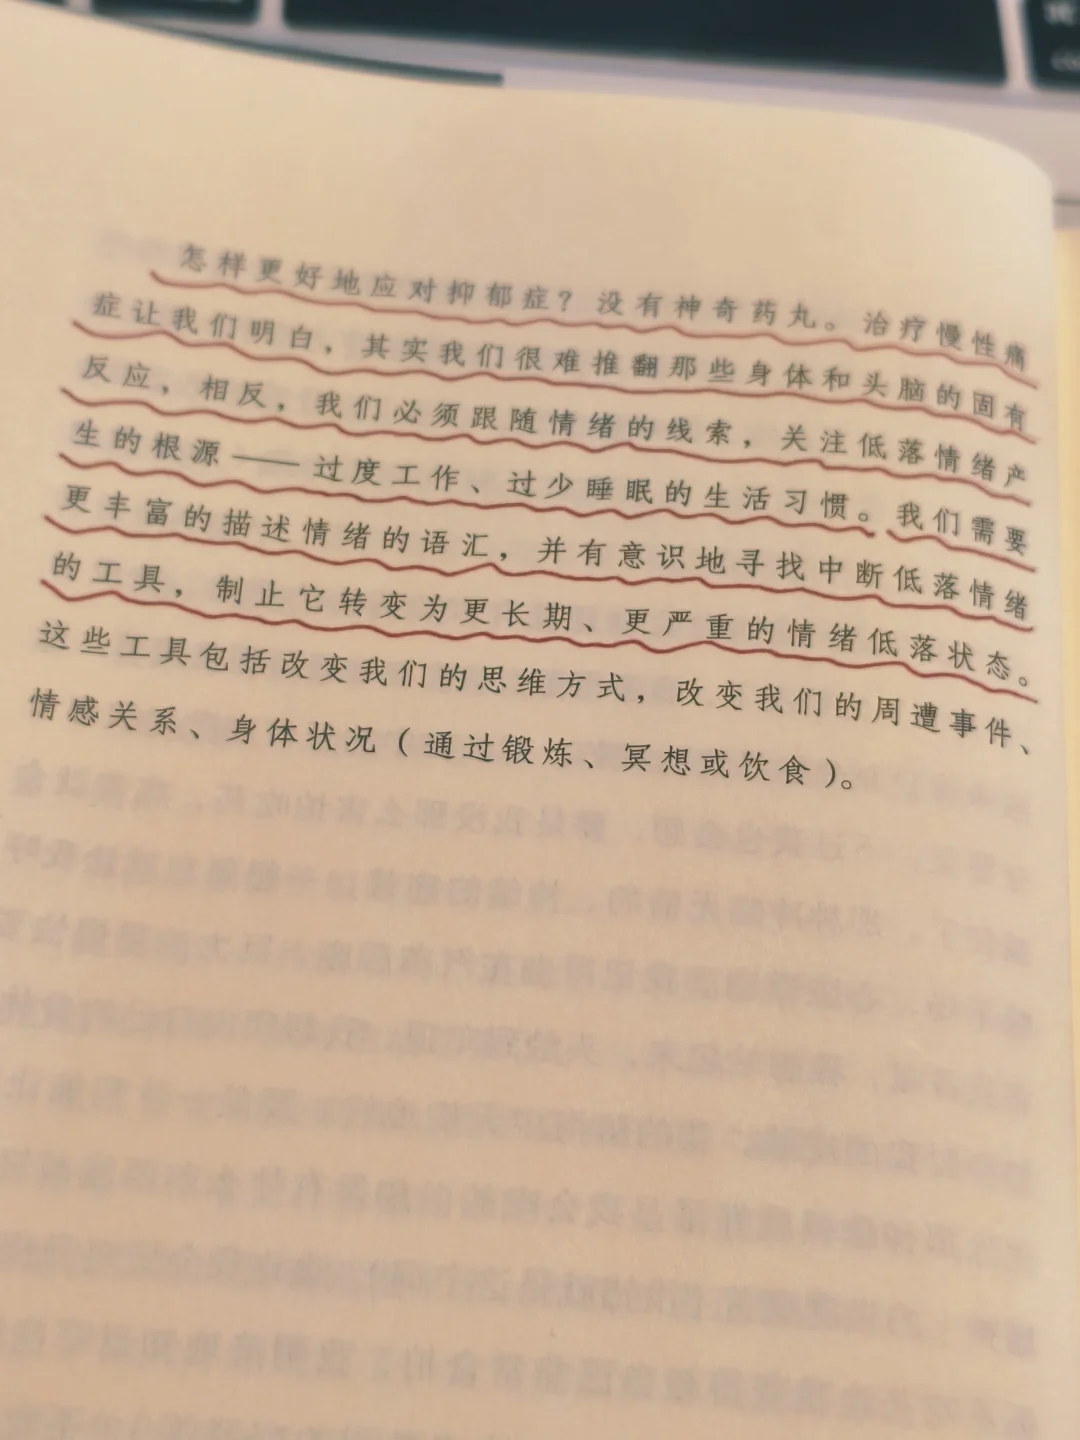 怎样更好地应对抑郁症？没有神奇药丸。治疗慢性痛
症让我们明白，其实我们很难推翻那些身体和头脑的固有
反应，相反，我们必须跟随情绪的线索，关注低落情绪产
生的根源——过度工作、过少睡眠的生活习惯。我们需要
更丰富的描述情绪的语汇，并有意识地寻找中断低落情绪
的工具，制止它转变为更长期、更严重的情绪低落状态。
这些工具包括改变我们的思维方式，改变我们的周遭事件、
情感关系、身体状况（通过锻炼、冥想或饮食）。